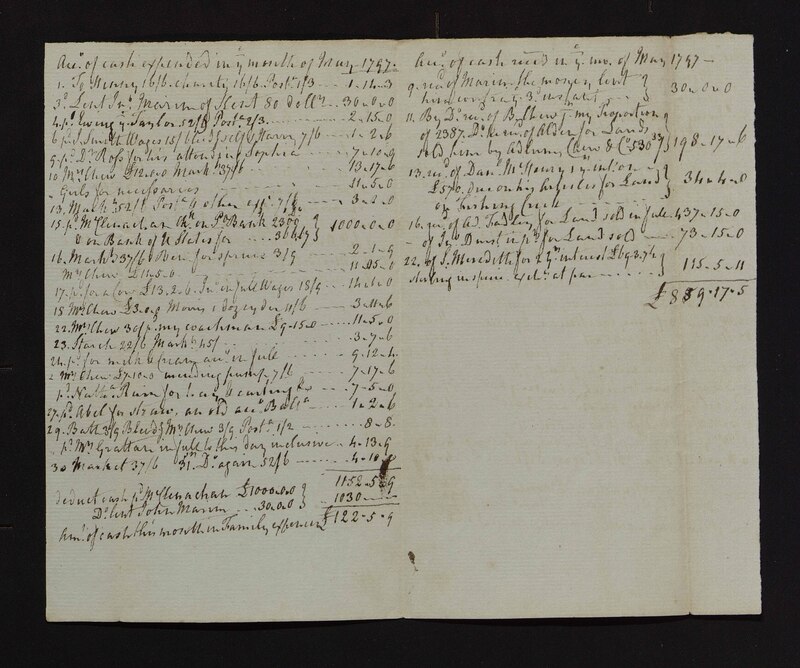 Acct. of cash expended in ye month of May 1797.
1. To Henry 16/6. charity 16/6. Posta. 1/3 1-14-3
3d. Lent Jno. Maxin of Kent 80 dollrs. 30-0-0
4. pd. Ewing ye Taylor 52/6 Posta 2/3 2-15-0
6 pd. J. Smith Wages 15/ 7/6 1-2-6
9. pd. Dr. Ross for his attendg. on Sophia 7-10-9
10 Mrs. Chew £12.0.0 Markt. my 37/6 13-17-6
Girls for necessaries 11-5-0
13. Markt. my 52/6 Posta. & other exps. 7/6 3-2-0
15. pd. McClenachan Ck. on Pa. Bank 2300
Do. on Bank of U States for 1000-0-0
16. Markt. 37/6 Ben for spruce 3/9 2-1-9
Mrs. Chew £11.5.0 11-5-0
17. pd. for a Cow £13.2.6. in full Wages 18/9 14-1-0
18 Mrs. Chew £3.0.0 Morris 1 doz cyder 11/6 3-11-6
22. Mrs. Chew 30/ pd. my coachman £9-15-0 11-5-0
23. Starch 22/6 Markt. 45/ 3-7-6
24. pd. for milk & cream acct. in full 9-12-4
Mrs. Chew £7.10.0 mending pump 7/6 7-17-6
pd. for hay & carting 7-5-0
27. pd. Abel for straw, an old acct. 1-2-6
29. 3/9 Mrs. Chew 3/9 Posta. 1/2 8-8
pd. Mrs. Grattan in full to this day inclusive 4-13-9
30 Market 37/6 31st. Do. again 52/6 4-10-0
1152-5-9
Deduct cash pd. McClenachan £1000.0.0
Do. lent John Maxin 30.0.0 1030
Amt. of cash this month in Family expences £122-5-9
Acct. of cash recd. in ye mo. of May 1797
9. recd. of Maxin the money lent
him on ye 3d. instant 30-0-0
11. By Do. rec. of B. Chew Jr. my Proportion
of 2387. Ds. rec. of Alder for Lands
sold him by Adlum, Chew & Co. 530 198-17-6
13. rec. of Danl. McHenry 1 yrs. int. on
£570. due on his articles for Land
on fishing creek 34-4-0
16. rec. of for Land sold in full 437-15-0
of Jno. Dunst in pt. for Land sold 73-15-0
22. of S. Meredith for 2 yrs. interest £693.7/6
sterling in specie exche. at par 115-5-11
£889-17-5